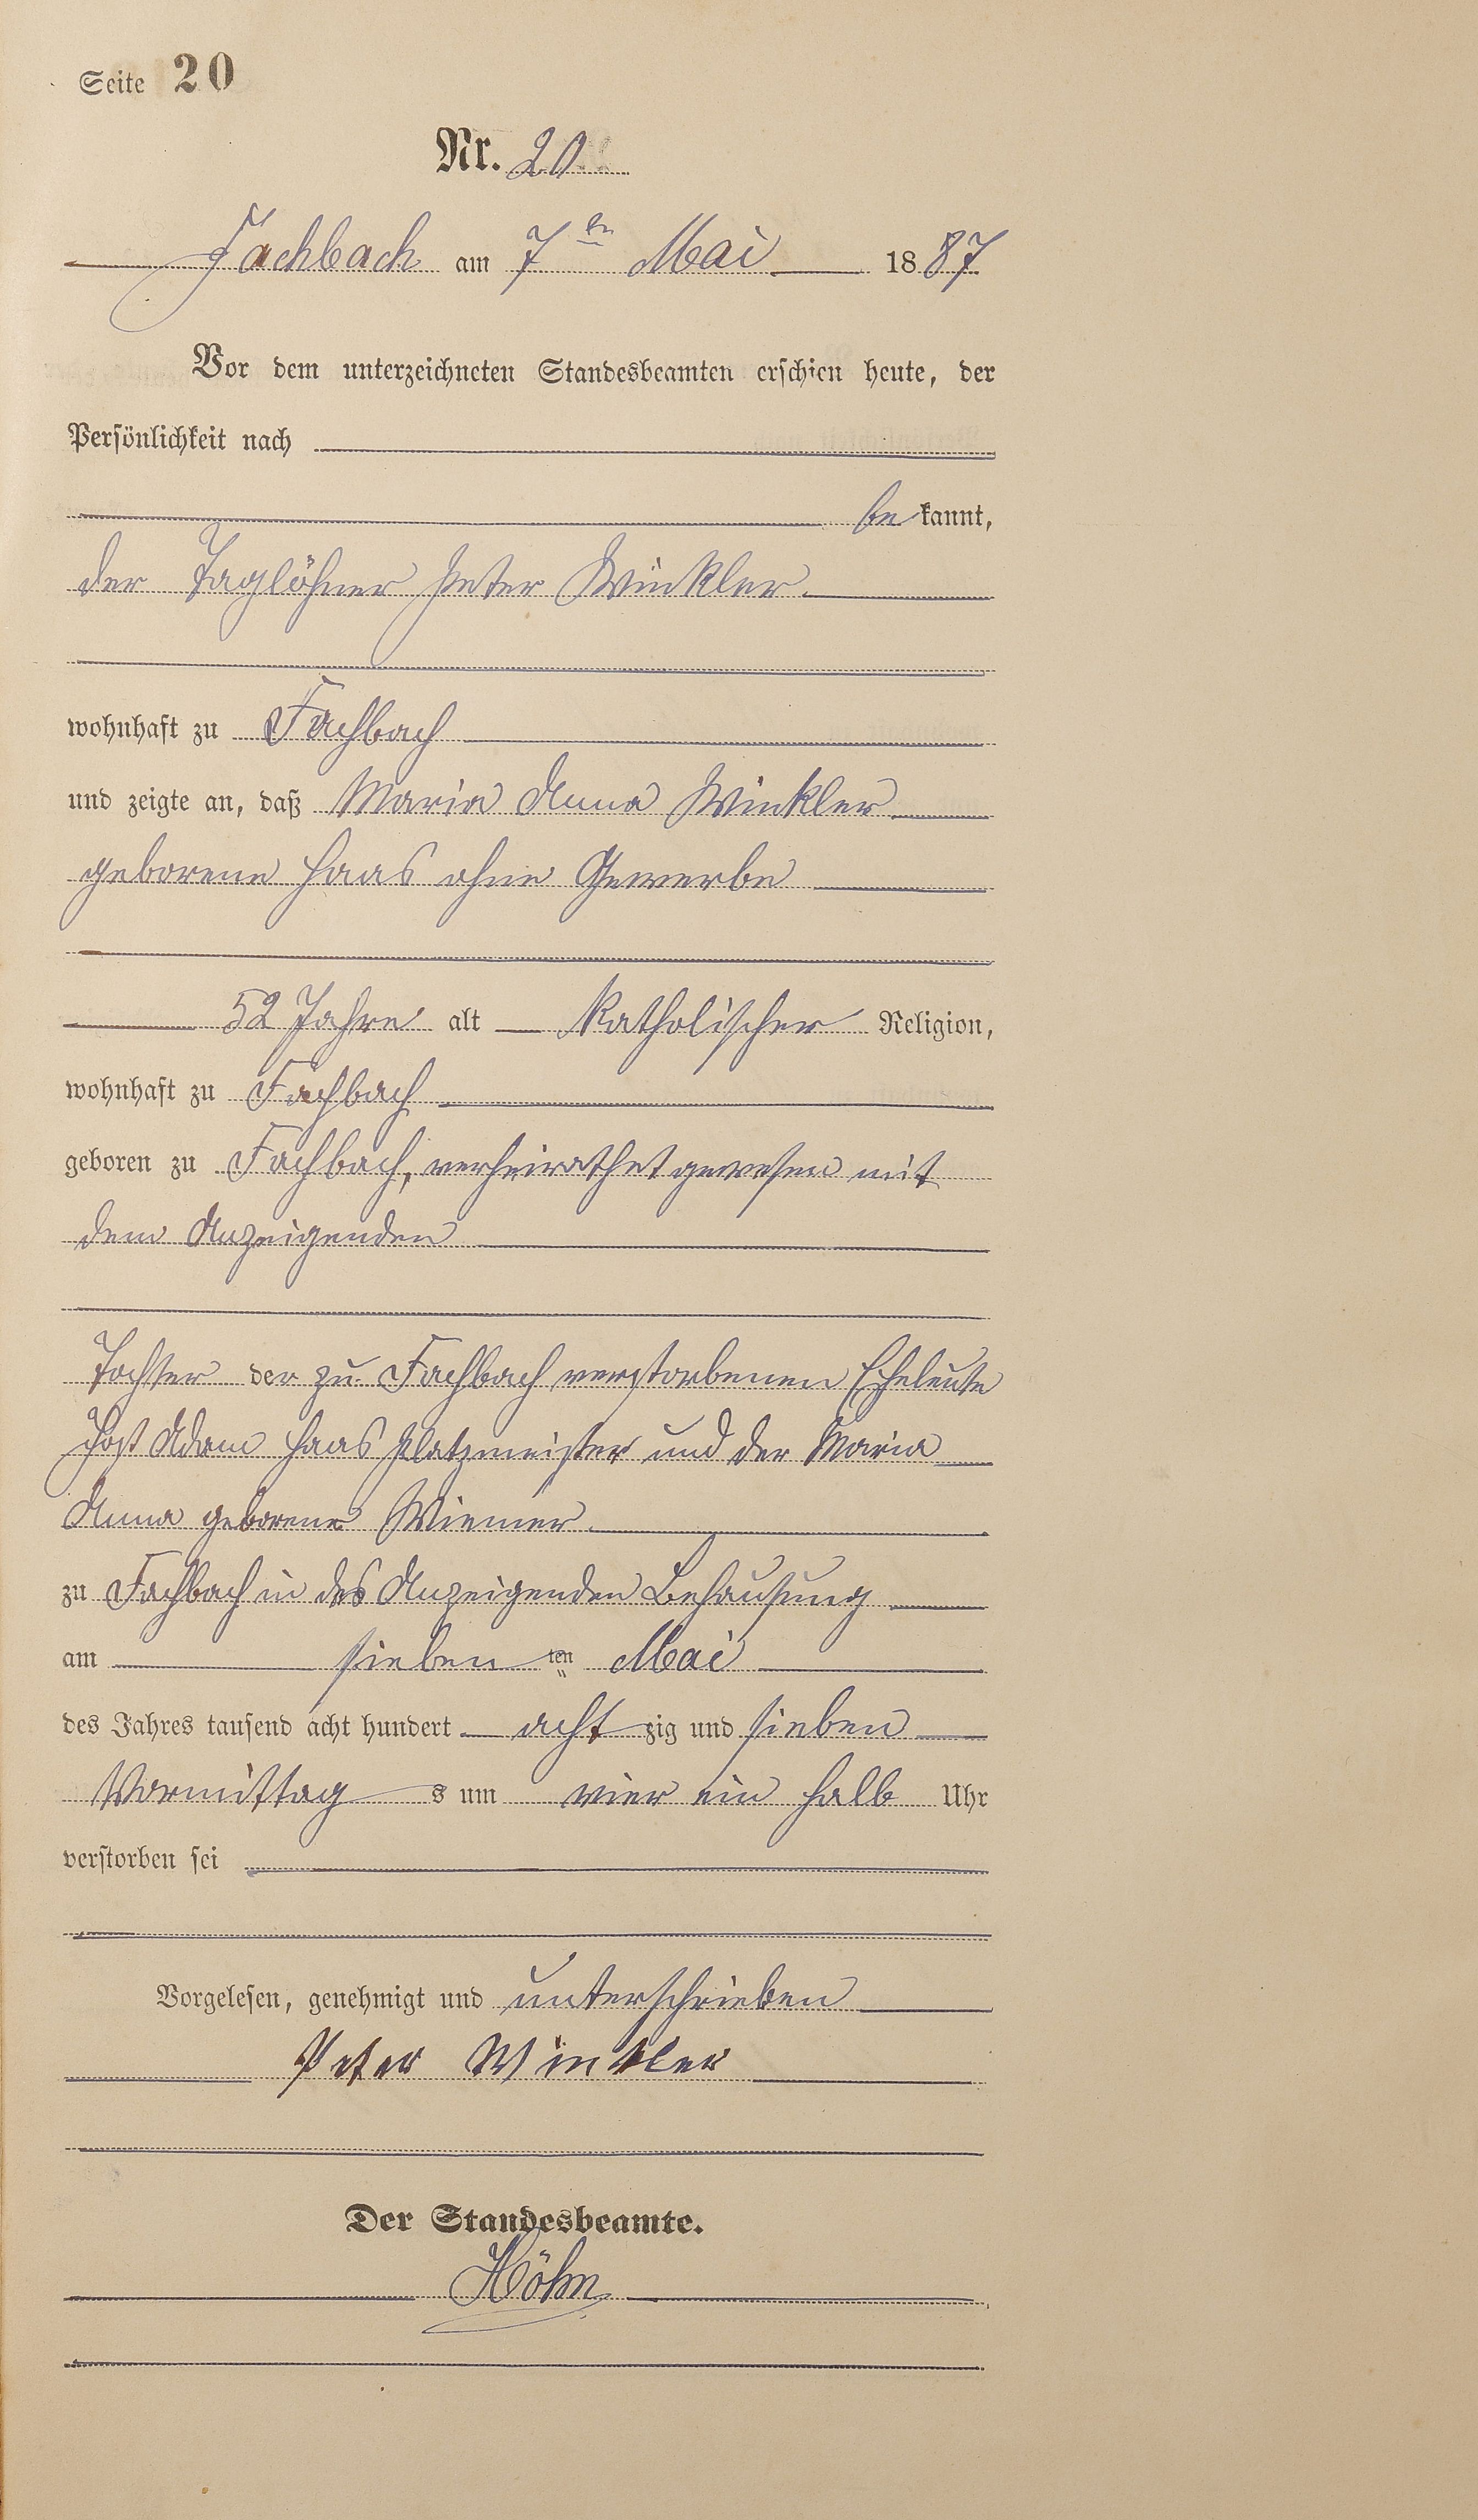 Seite 20
Nr. 20
Fachbach am 7ten Mai 1887
Vor dem unterzeichneten Standesbeamten erschien heute, der
Persönlichkeit nach
bekannt,
der Taglöhner Peter Winkler.
wohnhaft zu Fachbach
und zeigte an, daß Maria Anna Winkler
geborene Haas ohne Gewerbe
52 Jahre alt katholischer Religion,
wohnhaft zu Fachbach
geboren zu Fachbach, verheirathet gewesen mit
dem Anzeigenden
Tochter der zu Fachbach verstorbenen Eheleute
Jost Adam Haas Platzmeister und der Maria
Anna geborene Wiemer.
zu Fachbach in des Anzeigenden Behausung
am siebenten Mai
des Jahres tausend acht hundert achtzig und sieben
Vormittags um vier ein halb Uhr
verstorben sei
Vorgelesen, genehmigt und unterschrieben
Peter Winkler
Der Standesbeamte.
Höhn